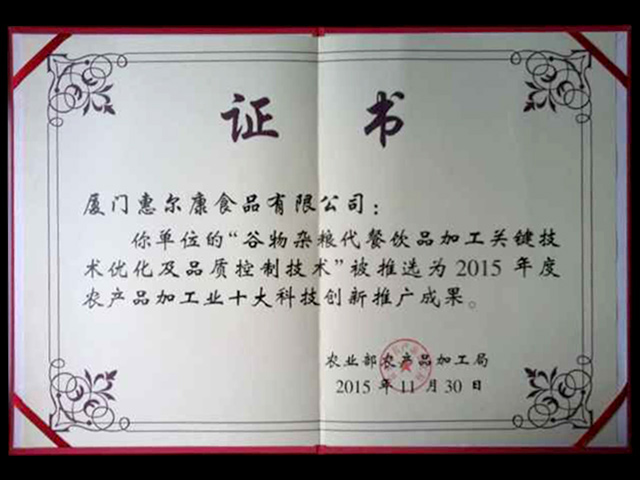 证 书
厦门惠尔康食品有限公司：
你单位的“谷物杂粮代餐饮品加工关键技
术优化及品质控制技术”被推选为 2015 年度
农产品加工业十大科技创新推广成果。
农业部农产品加工局
2015 年 11 月 30 日